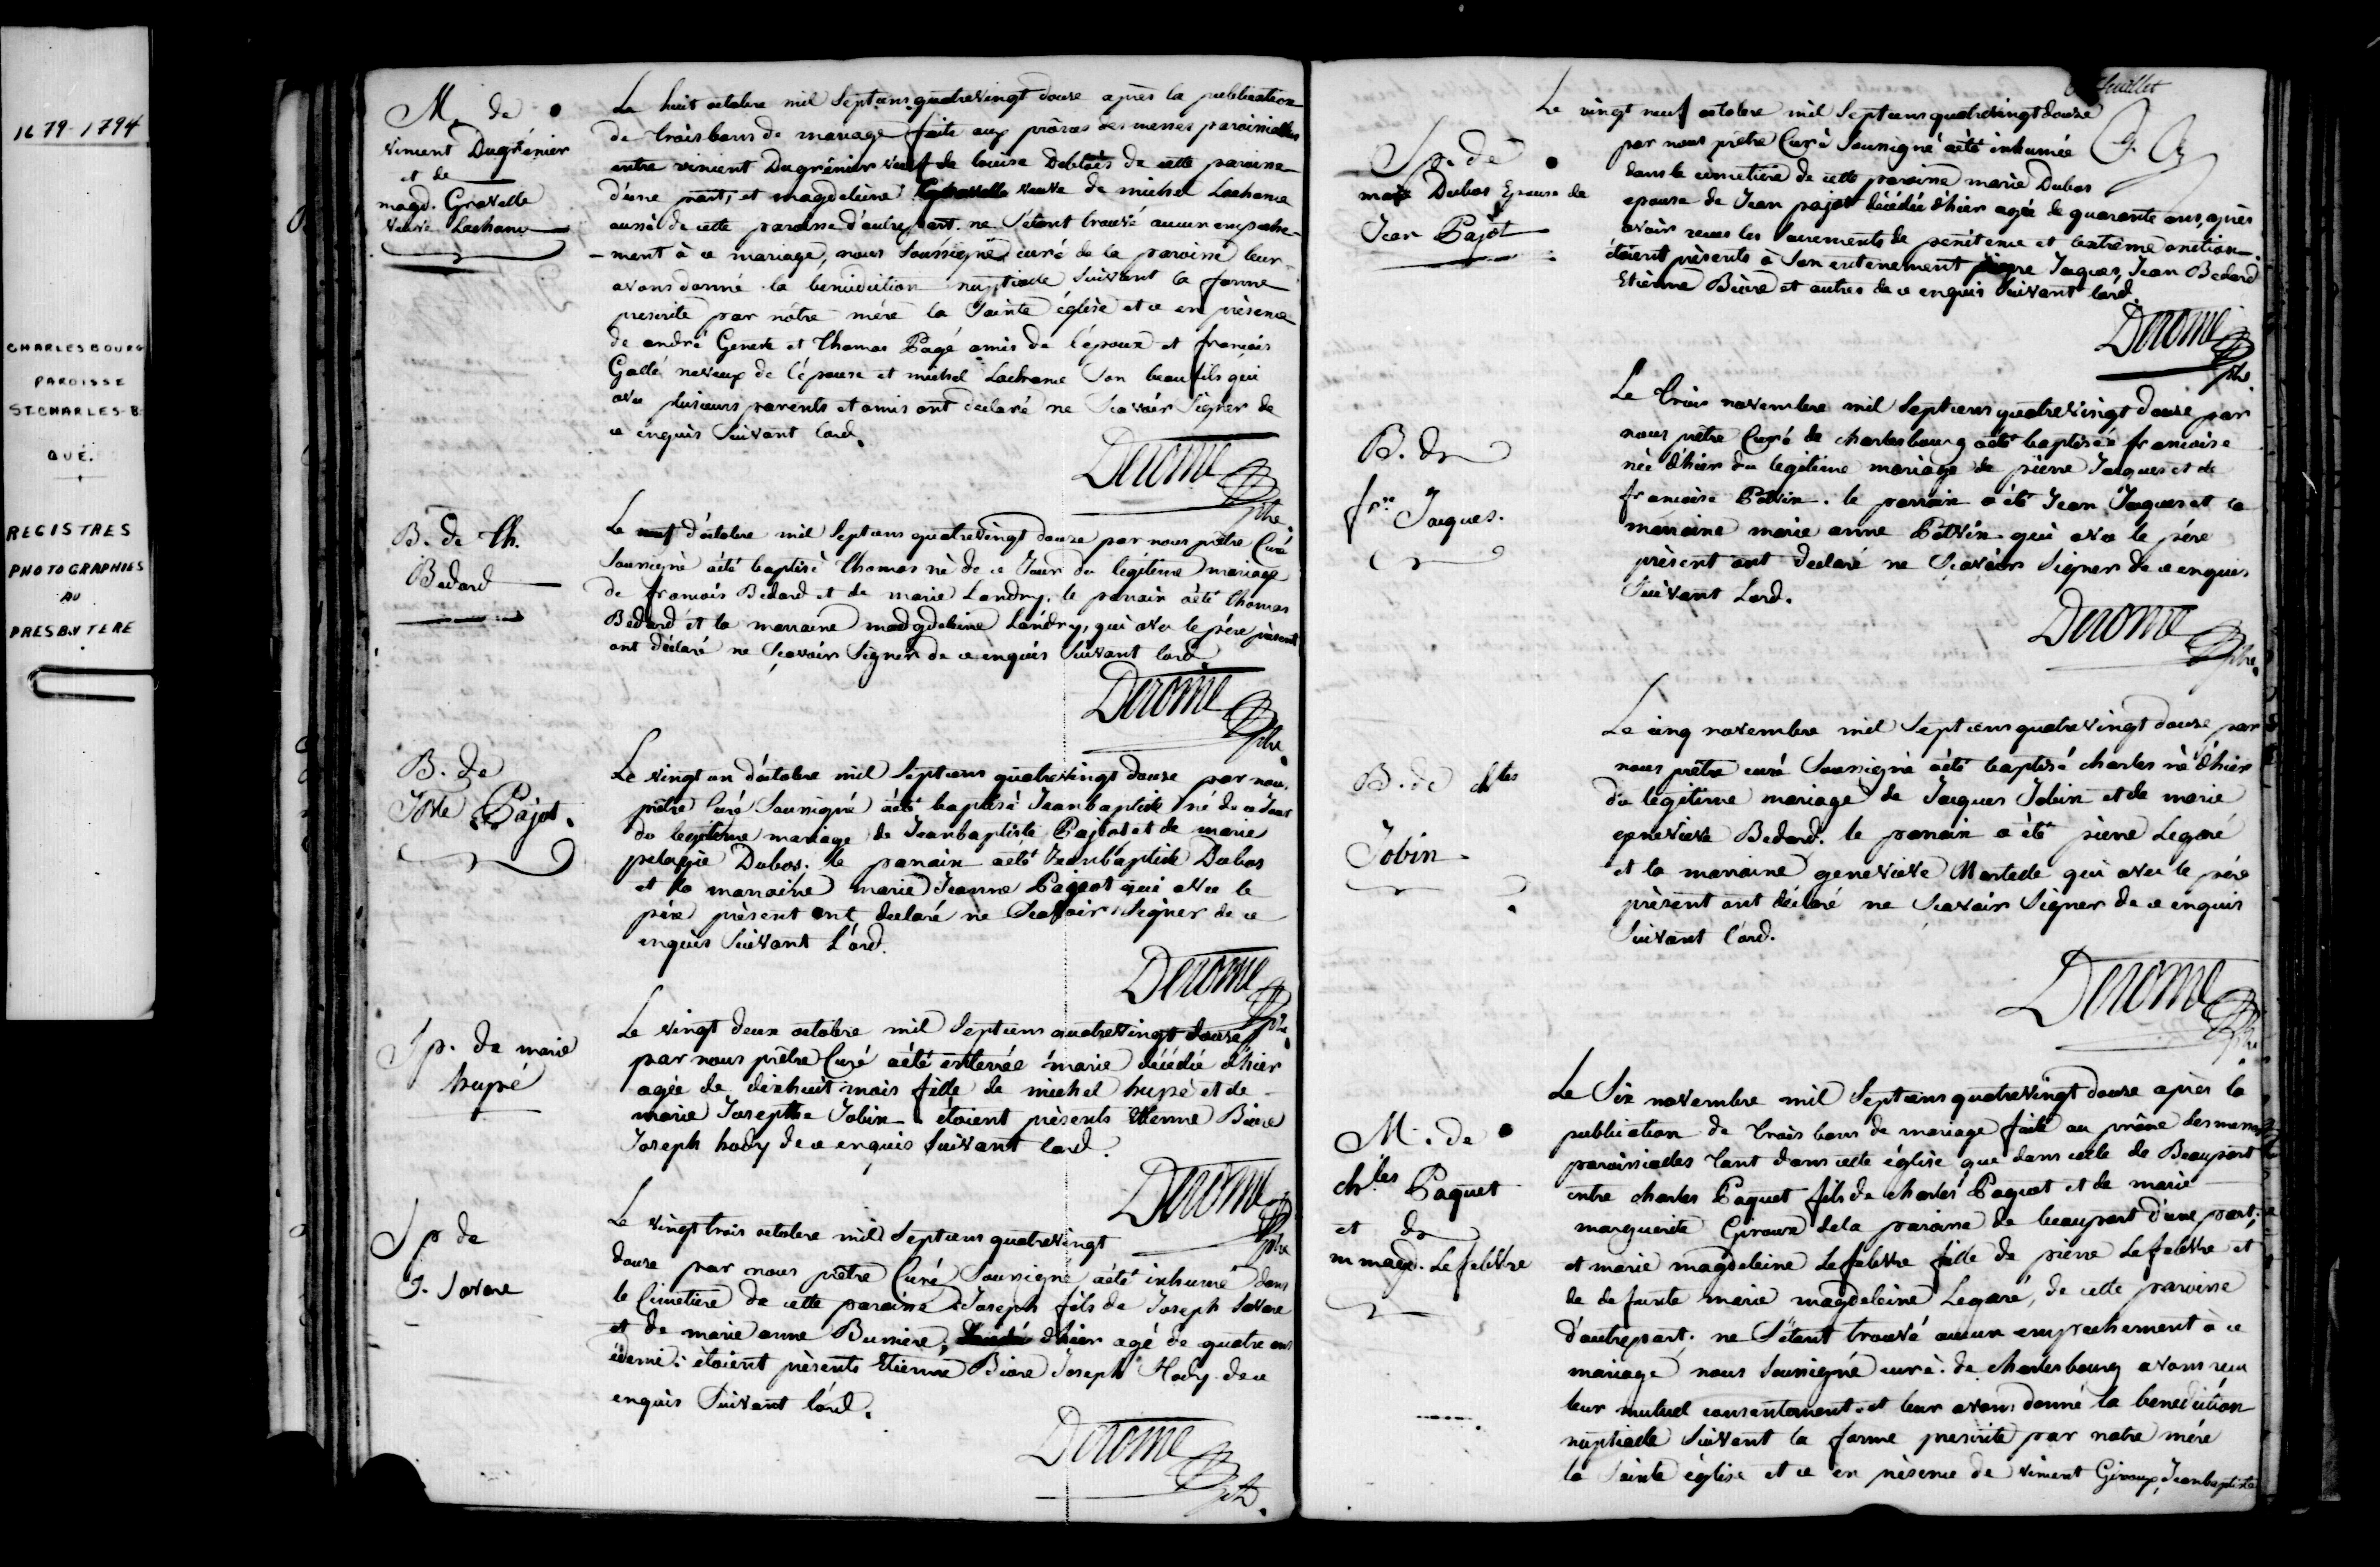 1679-1794
CHARLESBOURG
PAROISSE
ST.CHARLES-B.
QUÉ.
REGISTRES
PHOTOGRAPHIÉS
AU
PRESBYTERE
M. de
vincent Dugrénier
et de
magd. Gravelle
veuve Lachance
Le huit octobre mil Septcens quatrevingt douze après la publication
de trois bans de mariage faite aux prônes des messes paroissialles
entre vincent Dugrénier veuf de louise Deblois de cette paroisse
d'une part, et magdeleine Gravelle veuve de michel Lachance
aussi de cette paroisse d'autre part. ne S'étant trouvé aucun empeche-
-ment à ce mariage, nous Soussigné curé de la paroisse leur
avons donné la benediction nuptiale Suivant la forme
prescrite par nôtre mére la Sainte église et ce en présence
de andré Geneste et thomas Pagé amis de l'époux et francois
Gallé neveux de l'épouse et michel Lachance Son beaufils qui
avec plusieurs parents et amis ont declaré ne Scavoir Signer de
ce enquis Suivant l'ord.
Derome ptre.
B. de th.
Bedard
Le neuf d'octobre mil Septcens quatrevingt douze par nous prêtre Curé
Soussigné a été baptisé thomas né de ce Jour du légitime mariage
de francois Bedard et de marie Landry. le parrain a été thomas
Bedard et la marraine magdeleine Landry, qui avec le pére présent
ont déclaré ne Scavoir Signer de ce enquis Suivant l'ord.
Derome ptre
B. de
J Bte Pajot.
Le vingt un d'octobre mil Septcens quatrevingt douze par nous
prêtre Curé Soussigné a été baptisé Jeanbaptiste né de ce Jour
du legitime mariage de Jeanbaptiste Pajot et de marie
pelagie Dubos. le parrain a été Jeanbaptiste Dubos
et la marraine marie Jeanne Pageot qui avec le
pére présent ont declaré ne Scavoir Signer de ce
enquis Suivant L'ord.
Derome ptre.
Sp. de marie
hupé
Le vingt deux octobre mil Septcens quatrevingt douze
par nous prêtre Curé a été enterrée marie décédée d'hier
agée de dixhuit mois fille de michel hupé et de
marie Josephte Jobin. étoient présents Etienne Biere
Joseph hody de ce enquis Suivant l'ord.
Derome ptre
Sp de
J. Savare
Le vingt trois octobre mil Septcens quatrevingt
douze par nous prêtre Curé Soussigné a été inhumé dans
le Cimetiere de cette paroisse Joseph fils de Joseph Savare
et de marie anne Bussiere, décédé d'hier agé de quatre ans
édemi. étoient présents Etienne Biere Joseph Hody de ce
enquis Suivant l'ord.
Derome ptre.
feuillet
Sp. de
marie Dubos Epouse de
Jean Pajot
Le vingt neuf octobre mil Septcens quatrevingt douze
par nous prêtre Curé Soussigné a été inhumée
dans le cimetiere de cette paroisse marie Dubos
epouse de Jean pajot décédée d'hier agée de quarante ans, après
avoir recus les Sacrements de penitence et l'extréme onction.
étoient présents a Son enterrement pierre Jaques, Jean Bedard
Etienne Biere et autres de ce enquis Suivant l'ord.
Derome ptre.
B. de
fse Jacques.
Le trois novembre mil Septcens quatrevingt douze par
nous prêtre Curé de charlesbourg a été baptisée francoise
née d'hier du legitime mariage de pierre Jacques et de
francoise Potvin. le parrain a été Jean Jaques et la
marraine marie anne Potvin qui avec le pére
présent ont declaré ne Scavoir Signer de ce enquis
Suivant Lord.
Derome ptre.
B. de chles
Jobin
Le cinq novembre mil Septcens quatrevingt douze par
nous prêtre curé Soussigné a été baptisé charles né d'hier
du legitime mariage de Jacques Jobin et de marie
genevieve Bedard. le parrain a été pierre Legaré
et la marraine genevieve Martelle qui avec le pére
présent ont déclaré ne Scavoir Signer de ce enquis
Suivant l'ord.
Derome ptre.
M. de
chles Paquet
et de
m magd. Lefebvre
Le Six novembre mil Septcens quatrevingt douze après la
publication de trois bans de mariage faite au prône des messes
paroissialles tant dans cette église que dans celle de Beauport
entre charles Paquet fils de charles Paquet et de marie
marguerite Giroux de la paroisse de beauport d'une part;
et marie magdeleine Lefebvre fille de pierre Lefebvre et
de defunte marie magdeleine Legaré, de cette paroisse
d'autre part; ne S'étant trouvé aucun empechement à ce
mariage nous Soussigné curé de charlesbourg avons recu
leur mutuel consentement et leur avons donné la benediction
nuptialle Suivant la forme prescrite par notre mére
la Sainte église et ce en présence de vincent Giroux, Jeanbaptiste